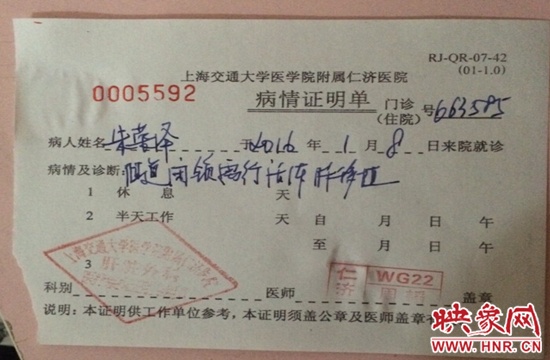 RJ-QR-07-42
(01-1.0)
上海交通大学医学院附属仁济医院
0005592
病情证明单
门诊
(住院)
号 663585
病人姓名 朱 泽 于2016年1月8日来院就诊
病情及诊断: 胆道闭锁需行活体肝移植
1 休 息 天
2 半天工作 天自 月 日 午
至 月 日 午
3
上海交通大学医学院附属仁济医院
肝脏外科
仁济
WG22
科别 医师 盖章
说明:本证明供工作单位参考,本证明须盖公章及医师盖章
映象网
www.hnr.cn